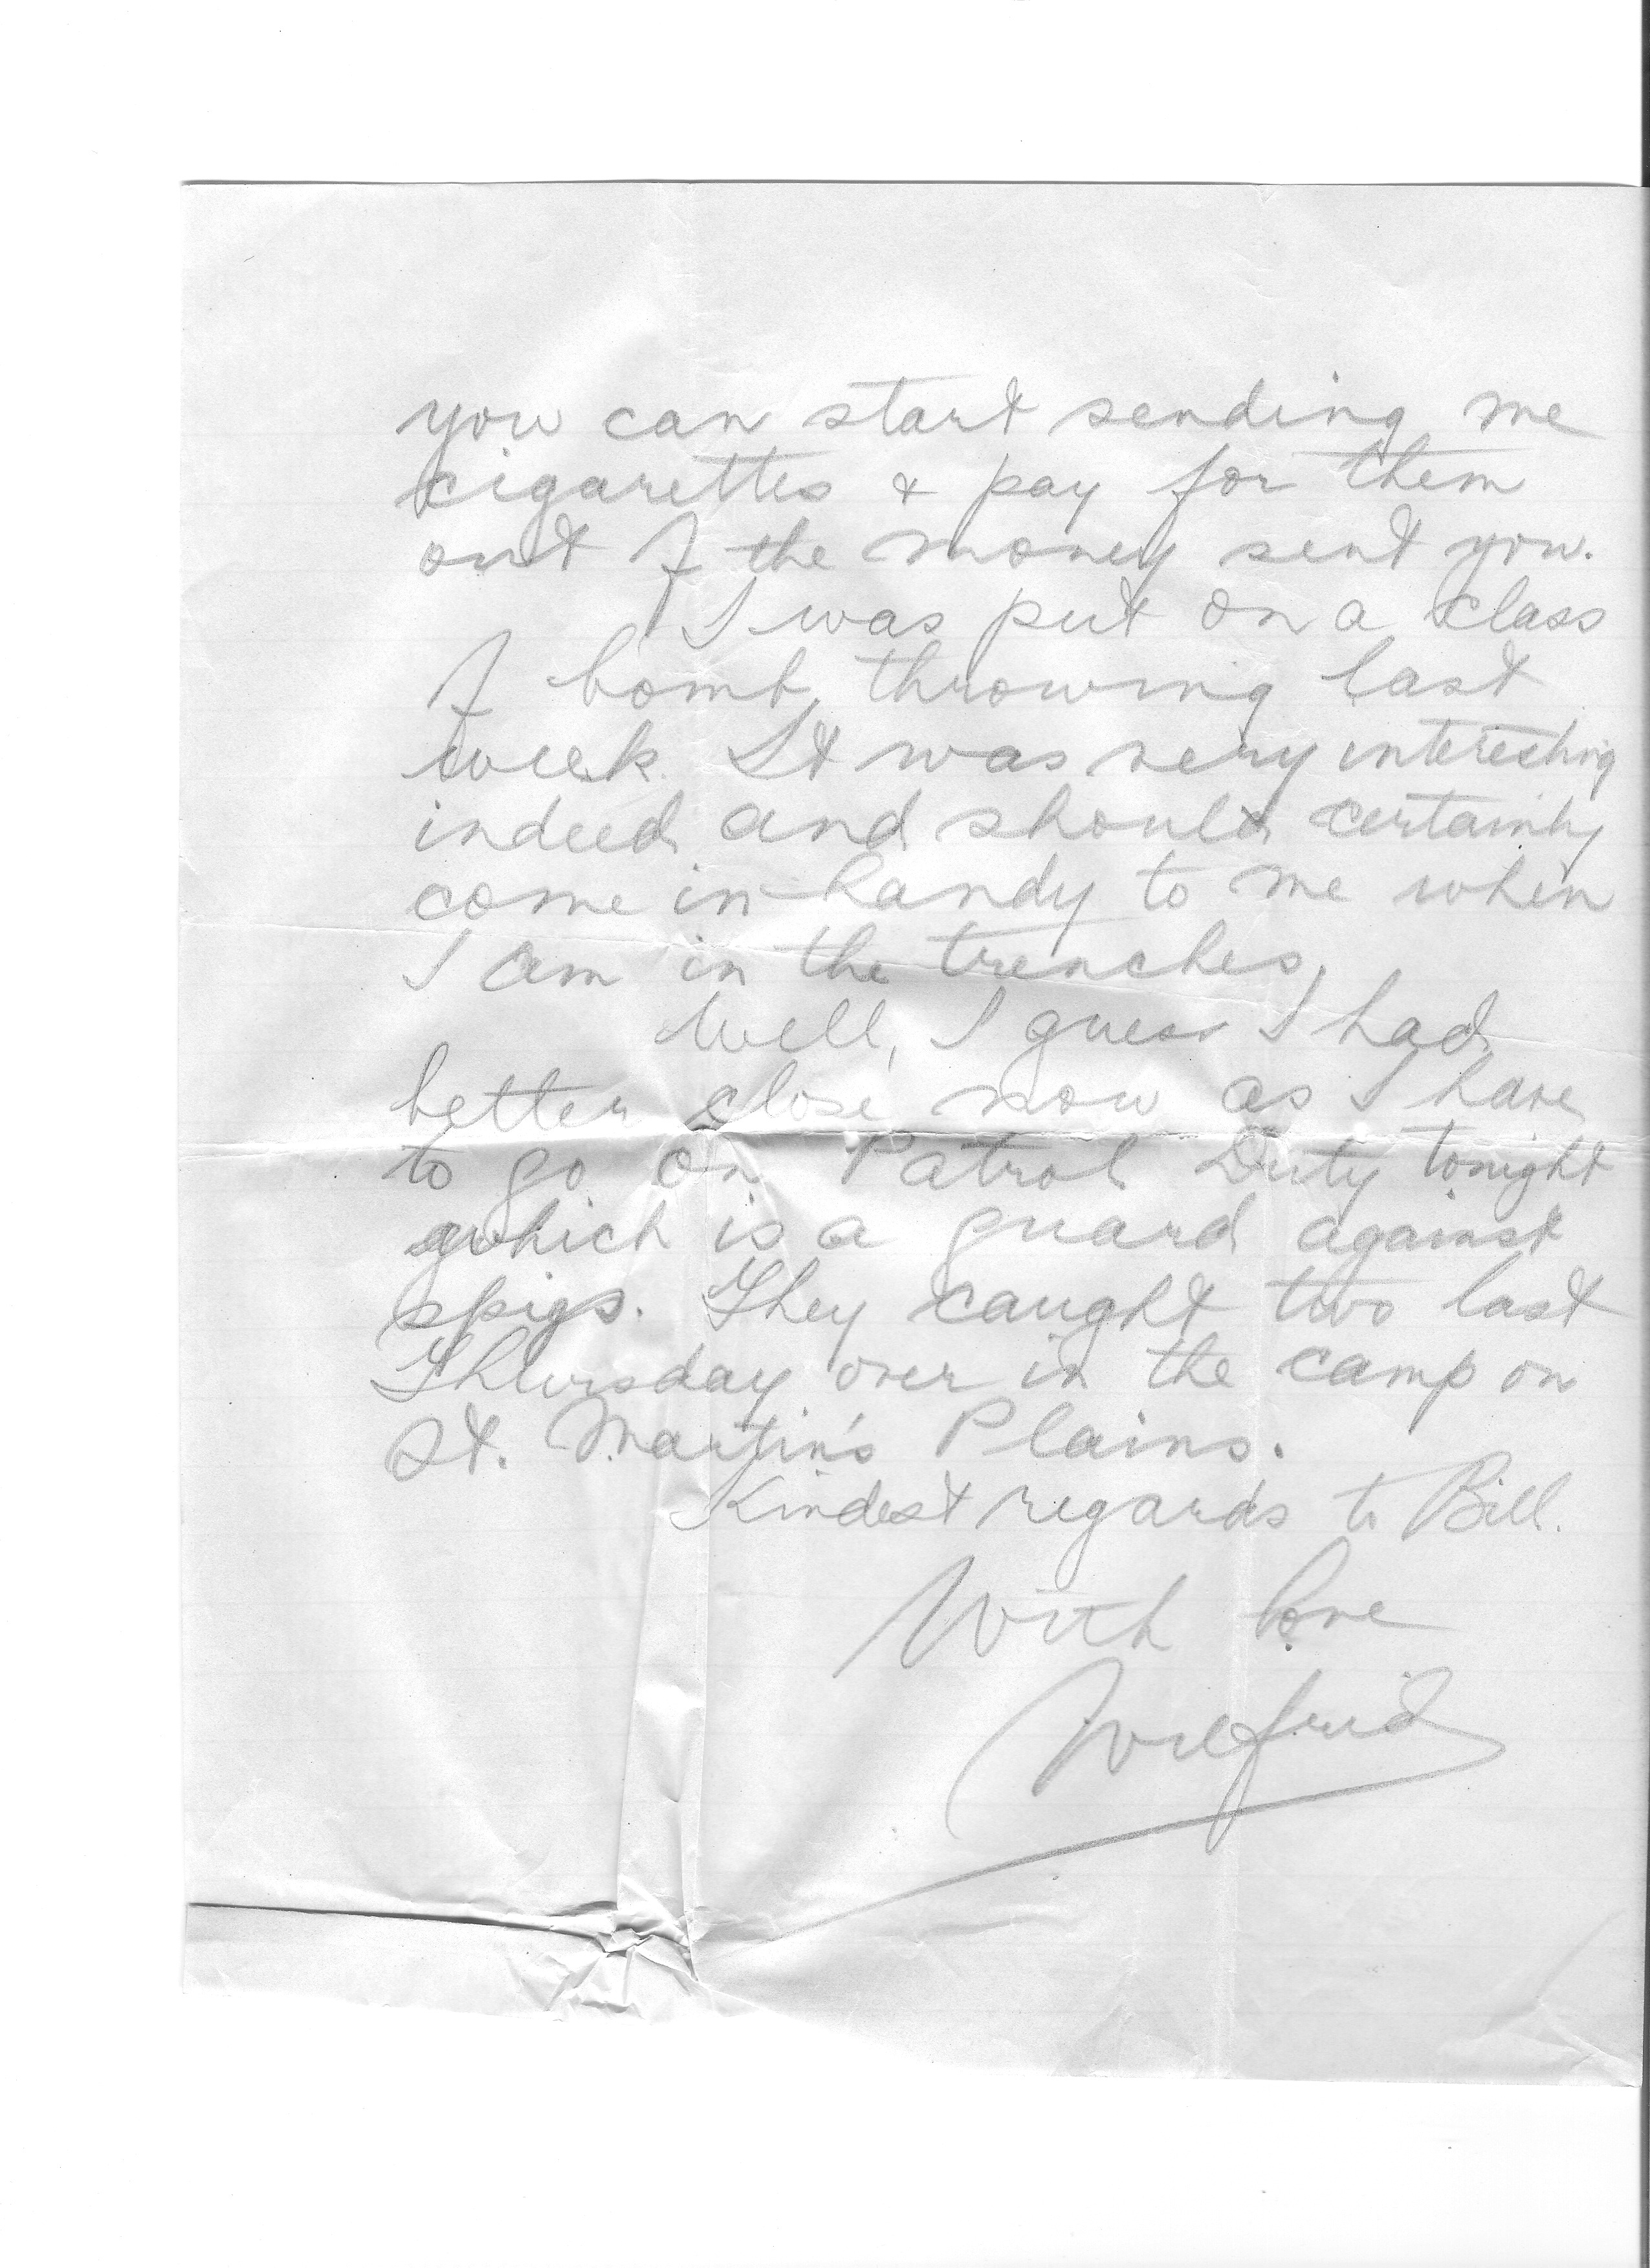 you can start sending me
cigarettes & pay for them
out of the money sent you.
I was put on a class
of bomb throwing last
week. It was very interesting
indeed and should certainly
come in handy to me when
I am in the trenches.
Well, I guess I had
better close now as I have
to go on Patrol Duty tonight
which is a guard against
spigs. They caught two last
Thursday over in the camp on
St. Martin's Plains.
Kindest regards to Bill.
With love
Wilfrid